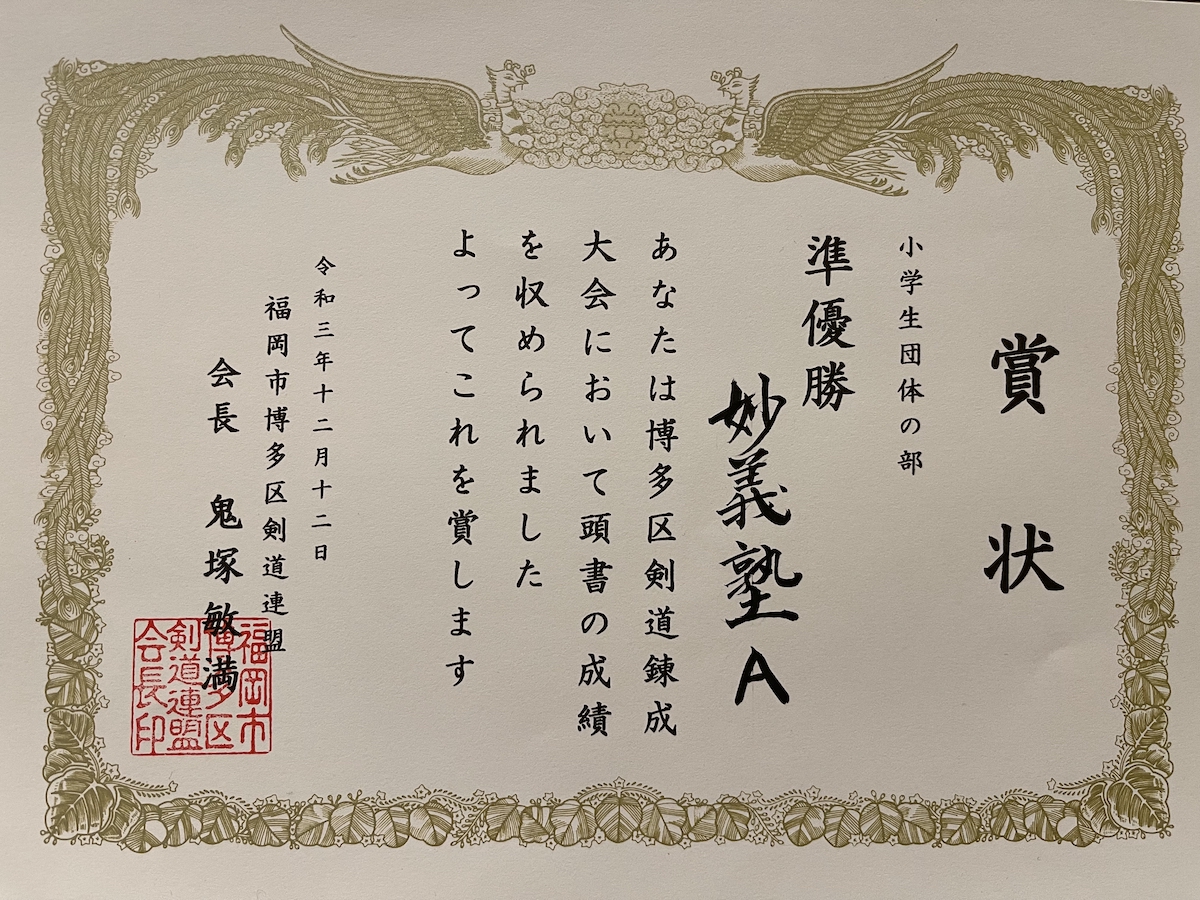 賞状
小学生団体の部
準優勝
妙義塾A
あなたは博多区剣道錬成
大会において頭書の成績
を収められました
よってこれを賞します
令和三年十二月十二日
福岡市博多区剣道連盟
会長 鬼塚敏満
福岡市
博多区
剣道連盟
会長印